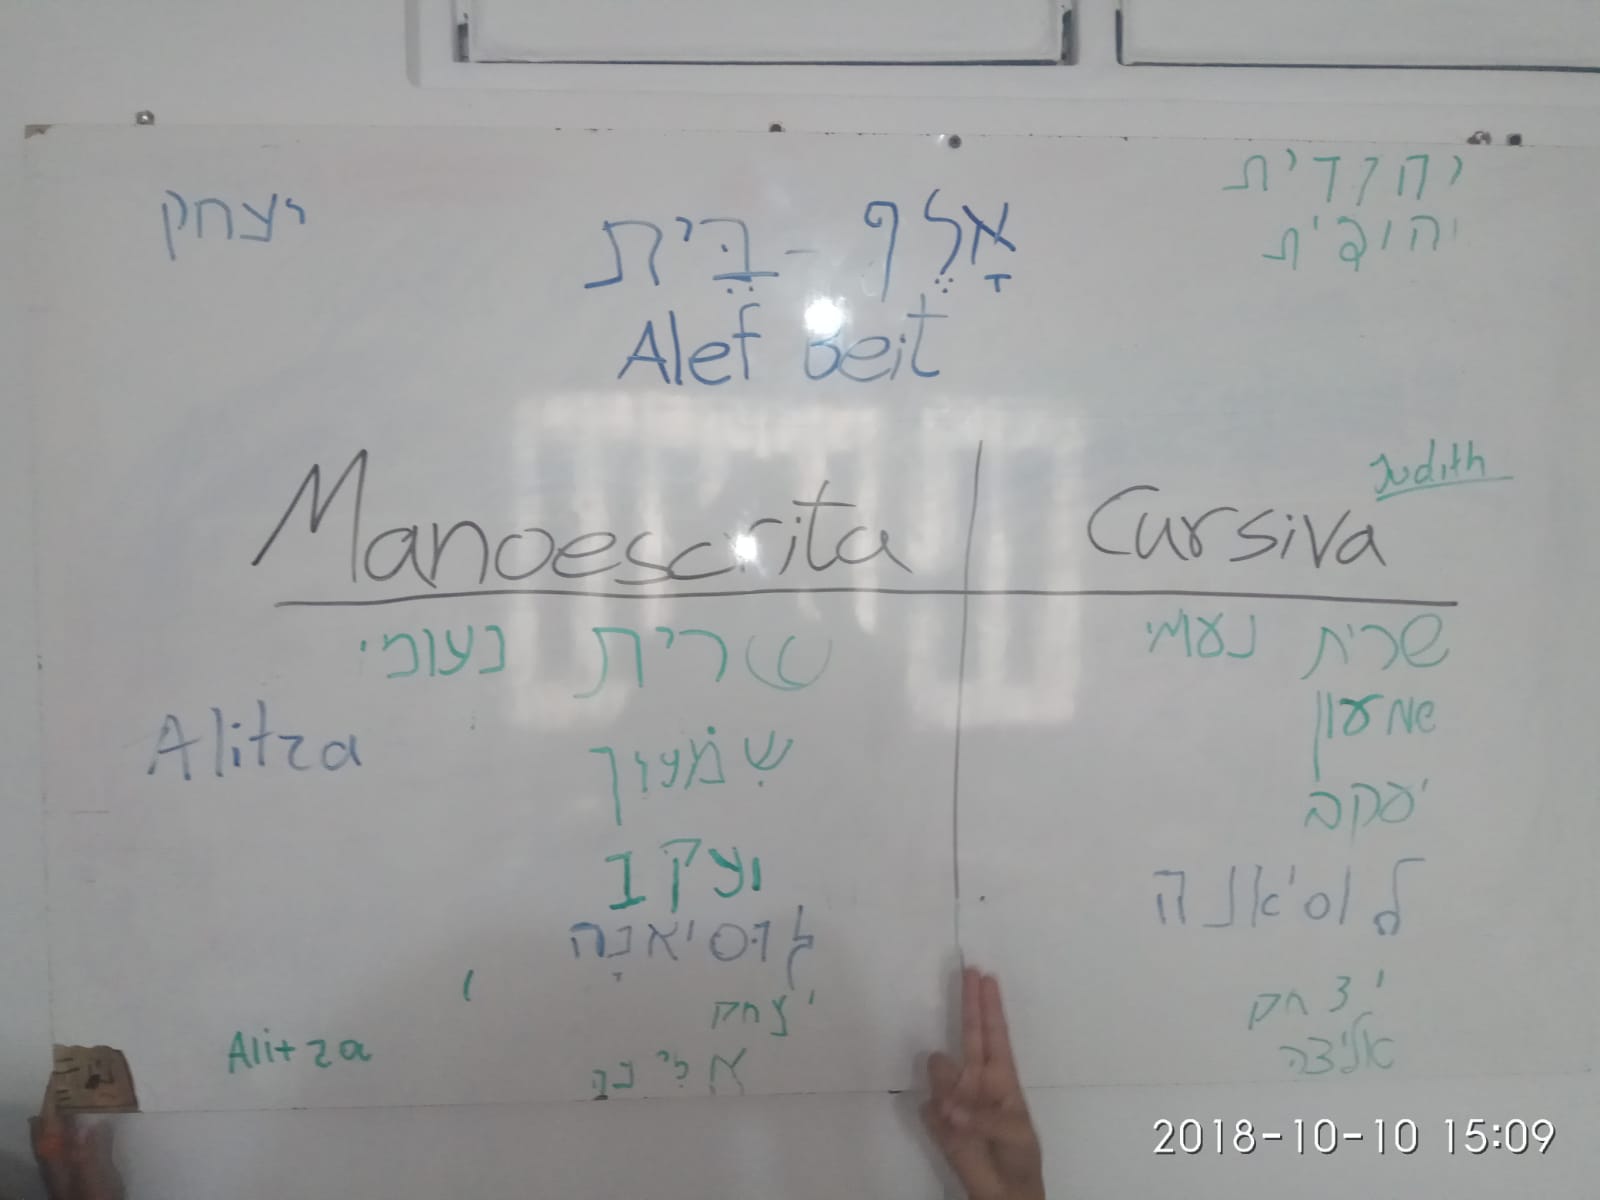 יצחק
אָלֶף-בֵּית
יהודית
יהודית
Alef Beit
Judith
Manoescrita
Cursiva
שרית נעומי
שרית נעמי
Alitza
שִׁמְעוֹן
שמעון
יעקב
יעקב
לוּסיאנָה
לוסיאנה
יצחק
יצחק
Alitza
אליצה
2018-10-10 15:09